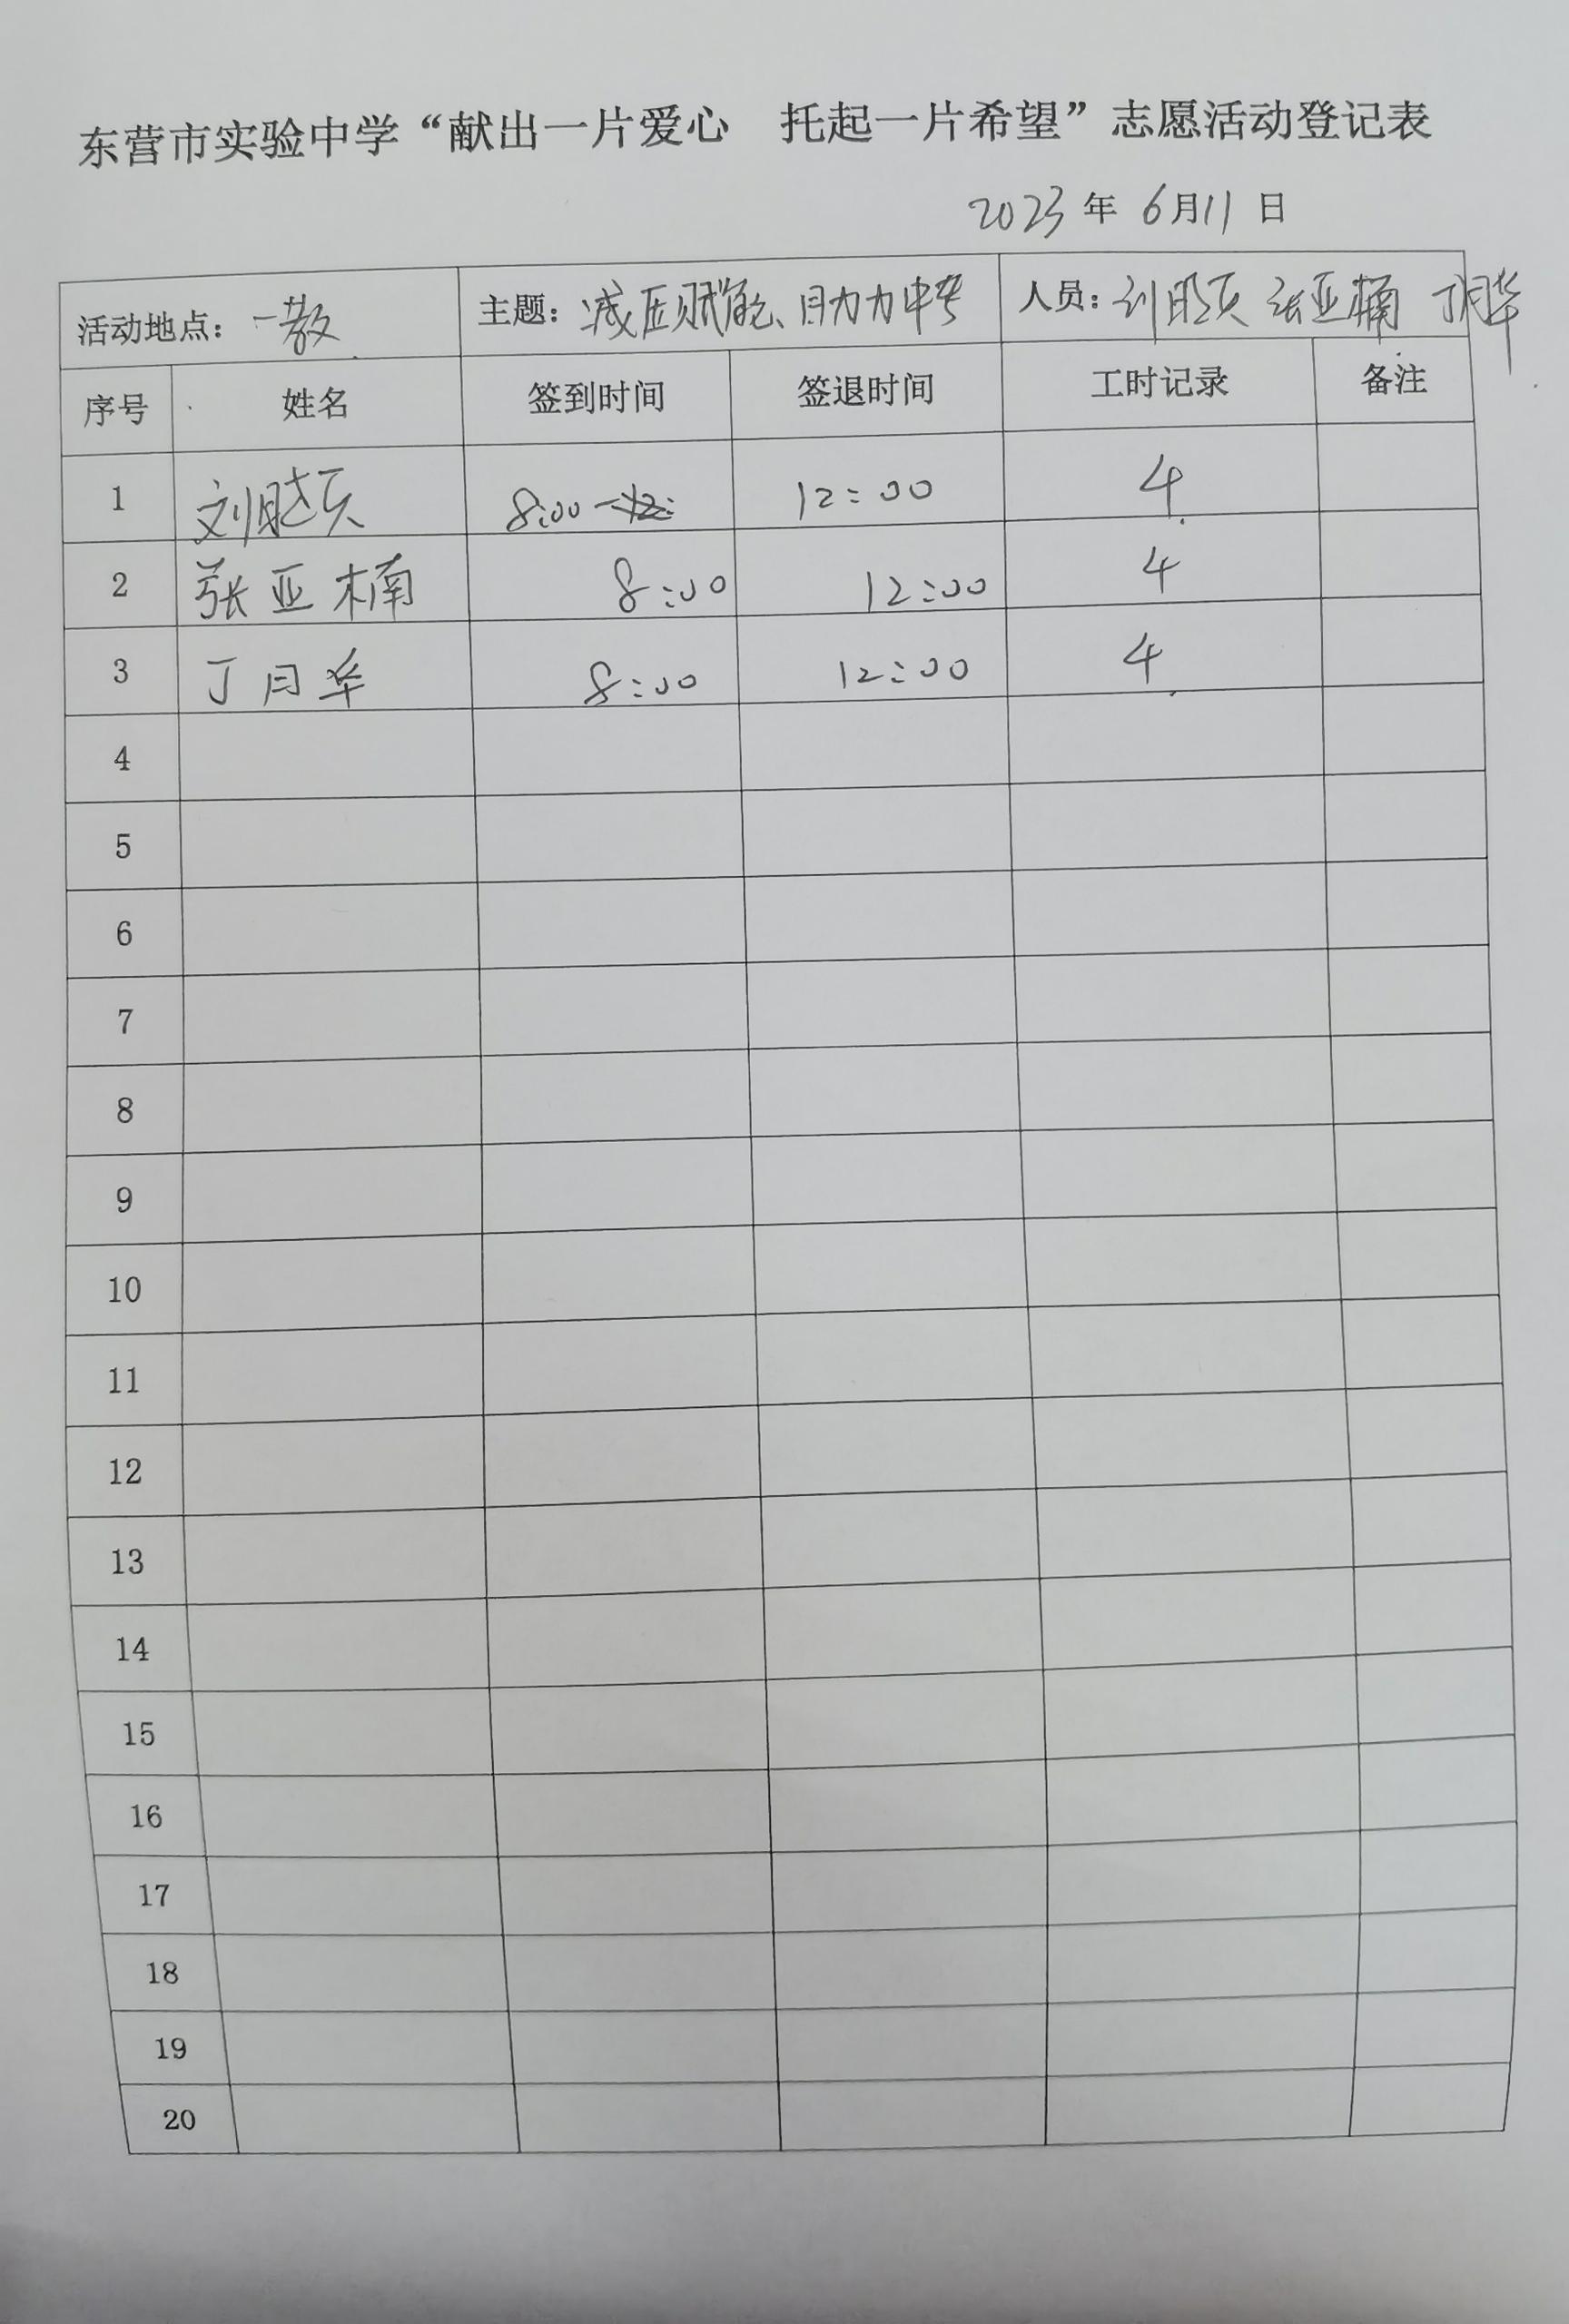 东营市实验中学“献出一片爱心 托起一片希望”志愿活动登记表
2023年 6月11日
活动地点：一教 主题：减压赋能、助力中考 人员：刘 张亚楠 丁月华
序号 姓名 签到时间 签退时间 工时记录 备注
1 刘 8:00 12:00 4
2 张亚楠 8:00 12:00 4
3 丁月华 8:00 12:00 4
4
5
6
7
8
9
10
11
12
13
14
15
16
17
18
19
20